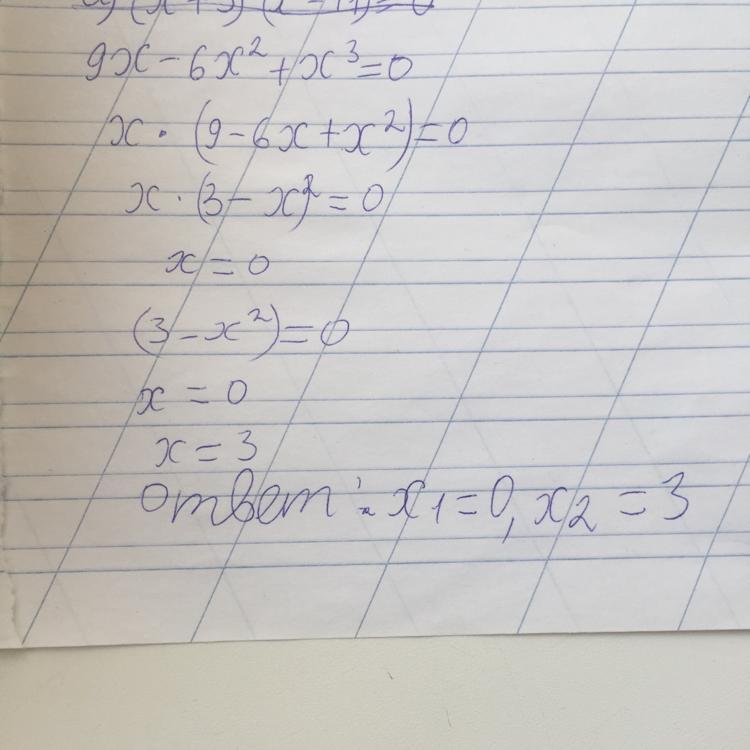 9x - 6x² + x³ = 0
x · (9 - 6x + x²) = 0
x · (3 - x)² = 0
x = 0
(3 - x²) = 0
x = 0
x = 3
Ответ: x₁ = 0, x₂ = 3